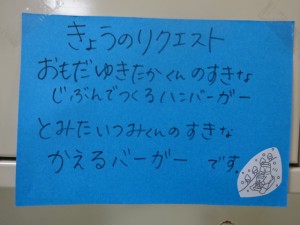 きょうのリクエスト
おもだゆきたかくんのすきな
じぶんでつくるハンバーガー
とみたいつみくんのすきな
かえるバーガー です。